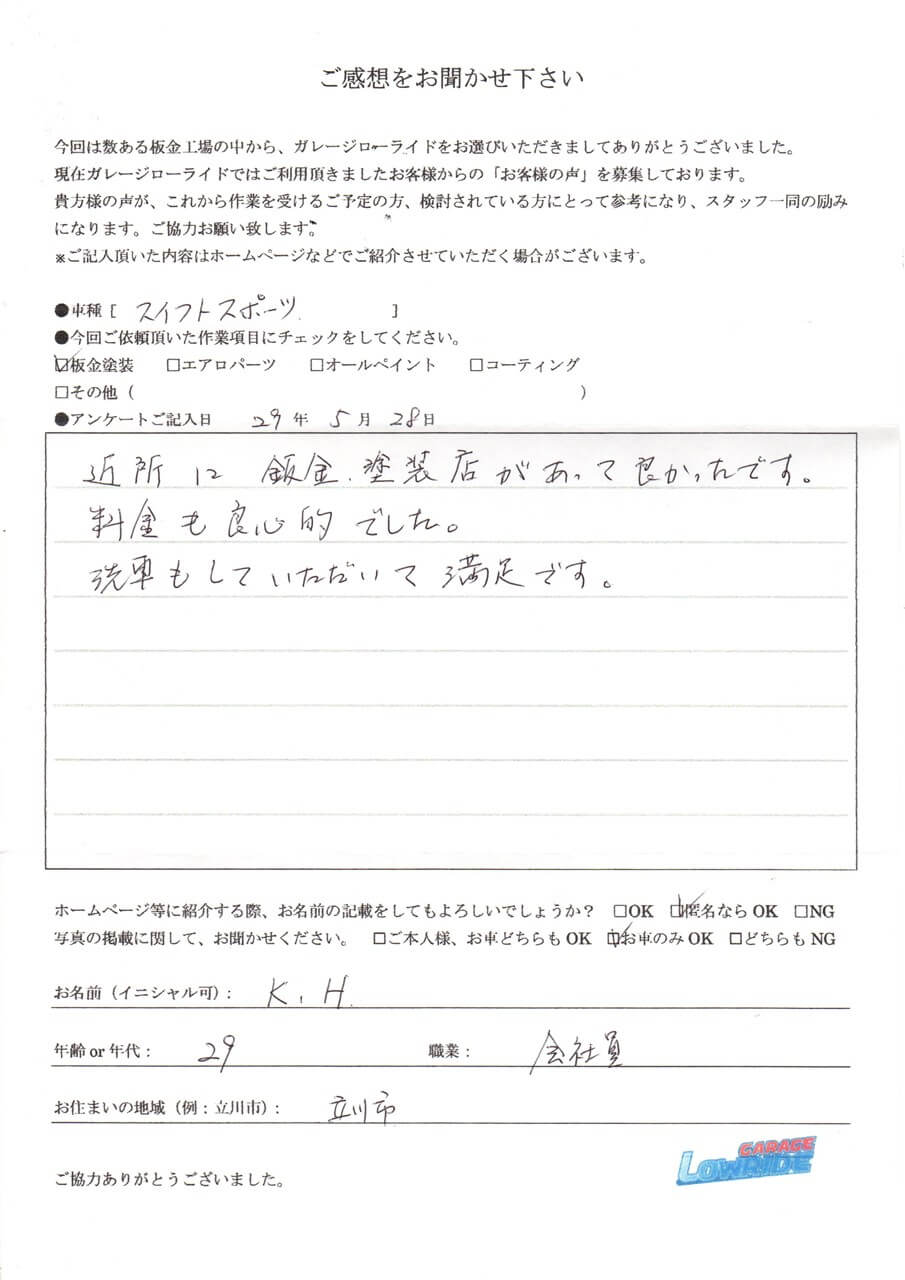 ご感想をお聞かせ下さい
今回は数ある板金工場の中から、ガレージローライドをお選びいただきましてありがとうございました。
現在ガレージローライドではご利用頂きましたお客様からの「お客様の声」を募集しております。
貴方様の声が、これから作業を受けるご予定の方、検討されている方にとって参考になり、スタッフ一同の励み
になります。ご協力お願い致します。
※ご記入頂いた内容はホームページなどでご紹介させていただく場合がございます。
●車種 [ スイフトスポーツ ]
●今回ご依頼頂いた作業項目にチェックをしてください。
☑板金塗装 □エアロパーツ □オールペイント □コーティング
□その他 ( )
●アンケートご記入日 29 年 5 月 28 日
近所に 鈑金.塗装店があって良かったです。
料金も良心的でした。
洗車もしていただいて満足です。
ホームページ等に紹介する際、お名前の記載をしてもよろしいでしょうか？ □OK ☑匿名なら OK □NG
写真の掲載に関して、お聞かせください。 □ご本人様、お車どちらも OK ☑お車のみ OK □どちらも NG
お名前（イニシャル可）： K.H.
年齢 or 年代： 29 職業： 会社員
お住まいの地域（例：立川市）： 立川市
GARAGE
LOWRIDE
ご協力ありがとうございました。